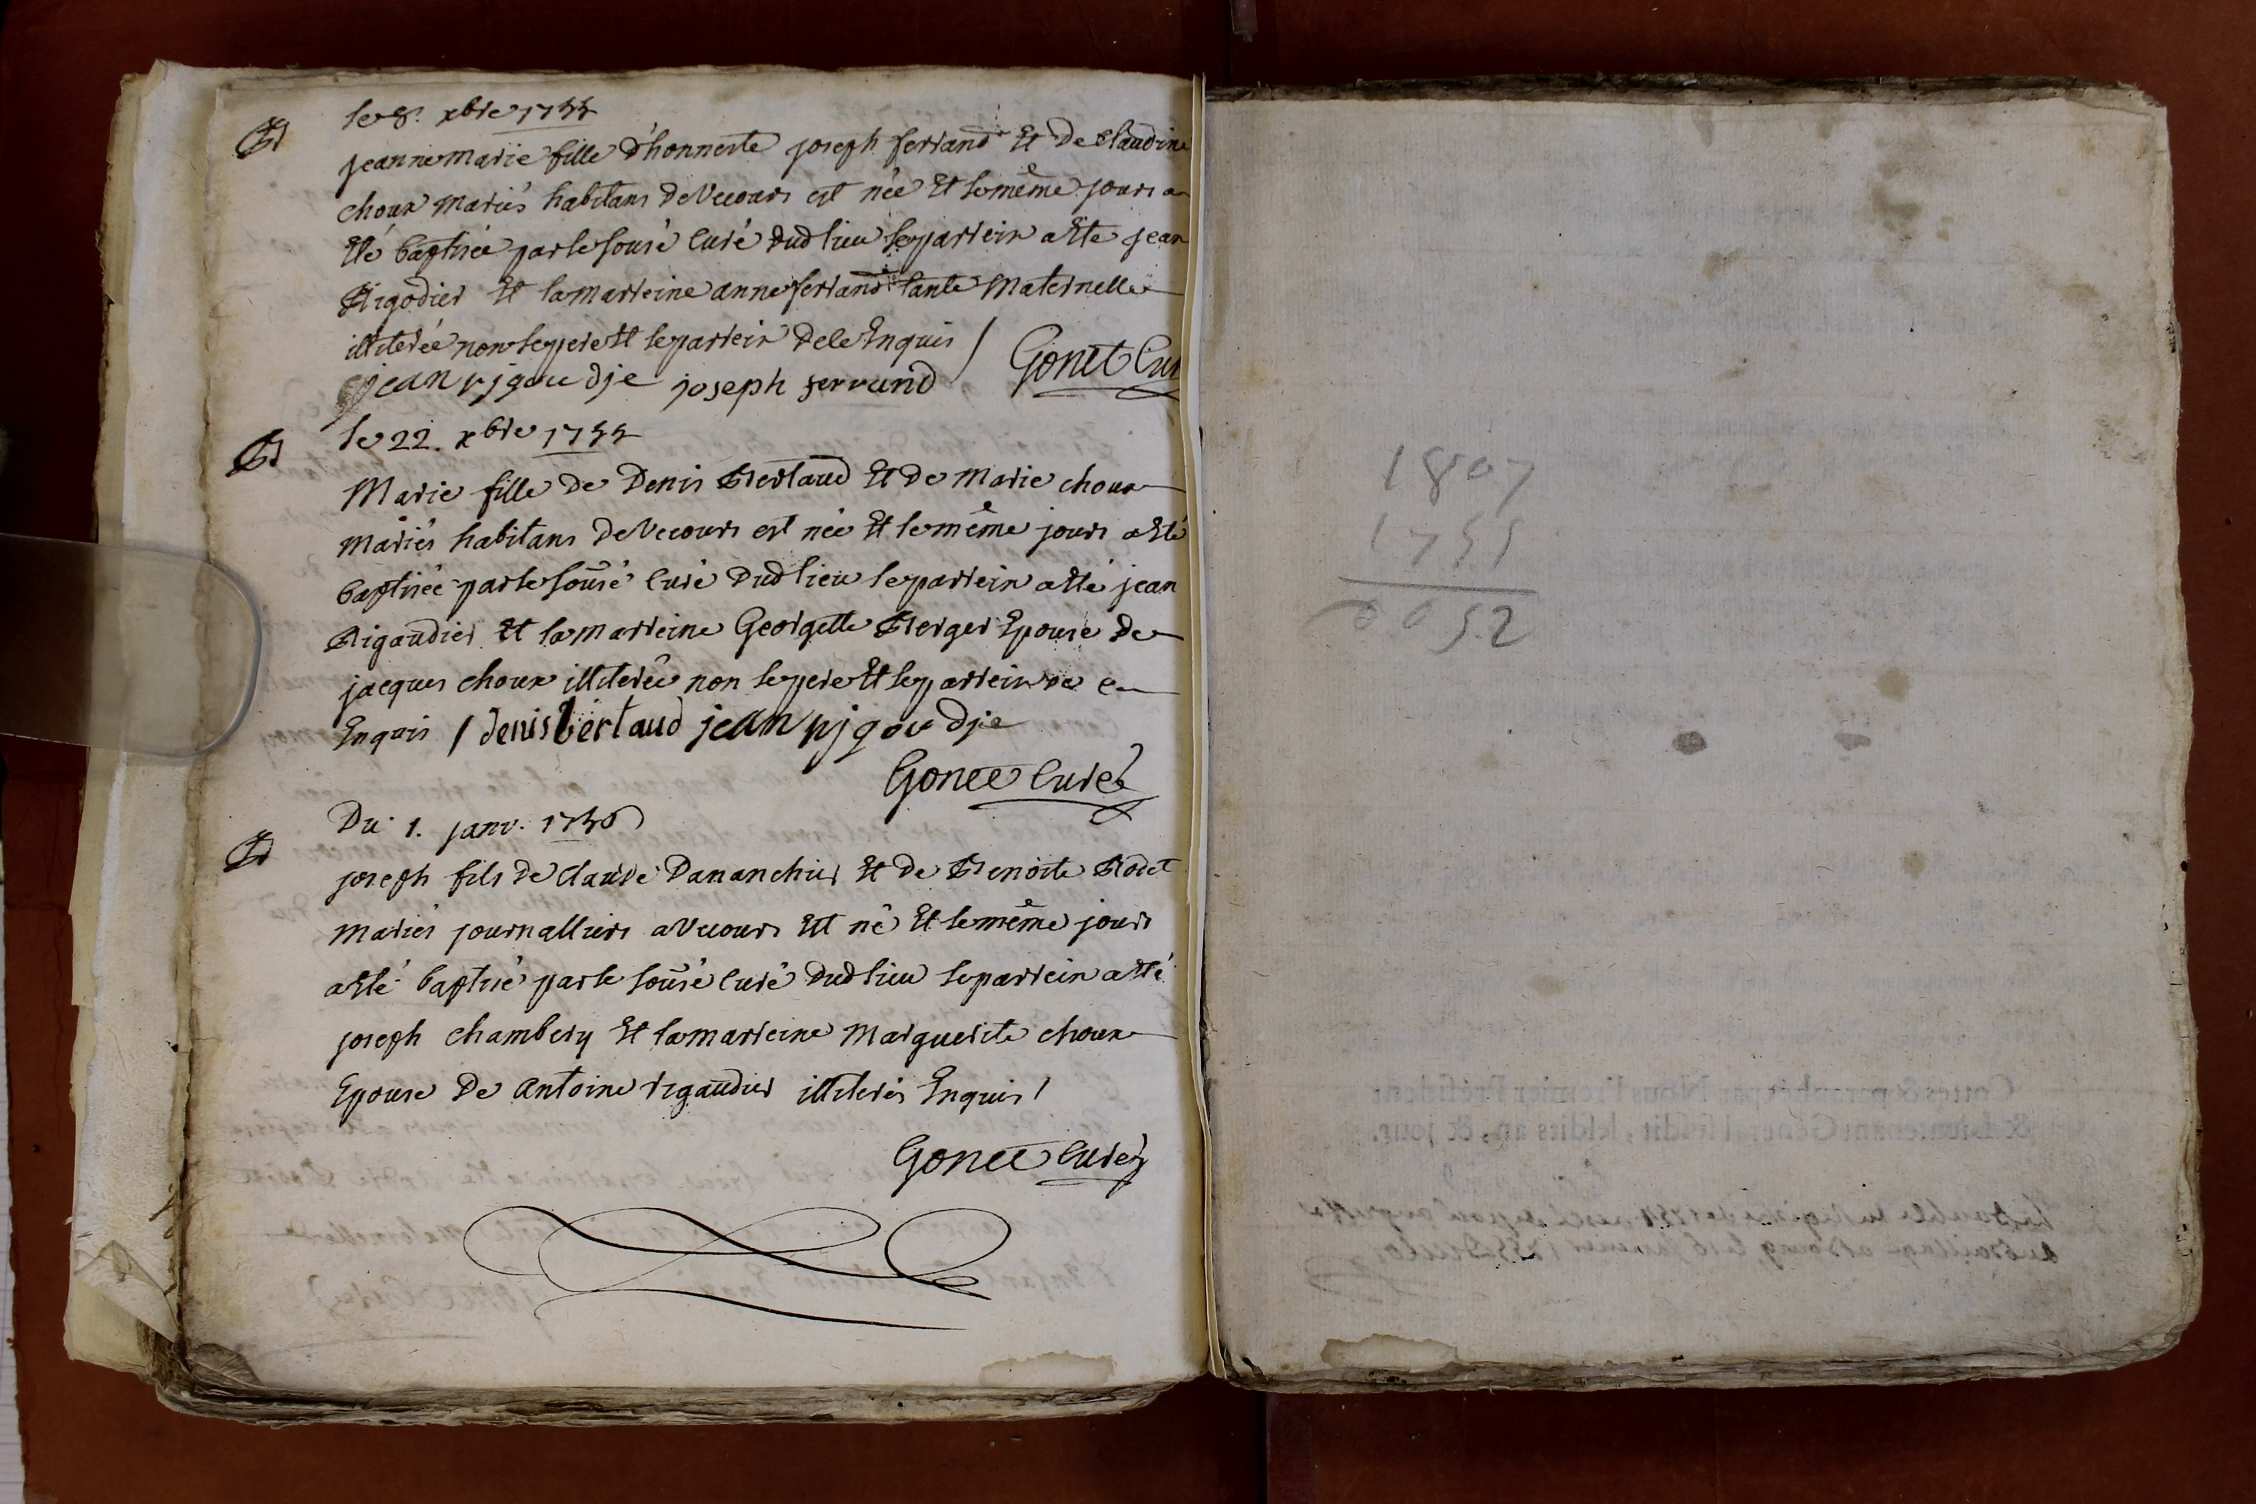 B
le 8. xbre 1755
jeanne marie fille d'honneste joseph ferrand Et de Claudine
choux mariés habitans de Vecours est née Et le même jours a
Eté baptisée par le sousé Curé dud lieu le parrein a Ete jean
Rigodier Et la marreine anne ferrand tante Maternelle
illiterée non le pere Et le parrein de ce Enquis /
jean rjgoudje joseph ferrand Gonet Cur
B
le 22. xbre 1755
Marie fille de Denis Bertaud Et de Marie choux
mariés habitans de Vecours est née Et le même jours a Eté
baptisée par le sousé Curé dud lieu le parrein a Eté jean
Rigaudier Et la marreine Georgette Berger Epouse de
jacques choux illiterée non le pere Et le parrein de ce
Enquis / denis bertaud jean rjgoudje
Gonet Curé
B
Du 1. janv. 1756
joseph fils de Claude Dananchier Et de Benoite Bodet
mariés journalliers a Vecours Est né Et le même jours
a Eté baptisé par le sousé Curé dud lieu le parrein a Eté
joseph Chambery Et la marreine Marguerite choux
Epouse De antoine rigaudier illiterés Enquis /
Gonet Curé
1807
1755
0052